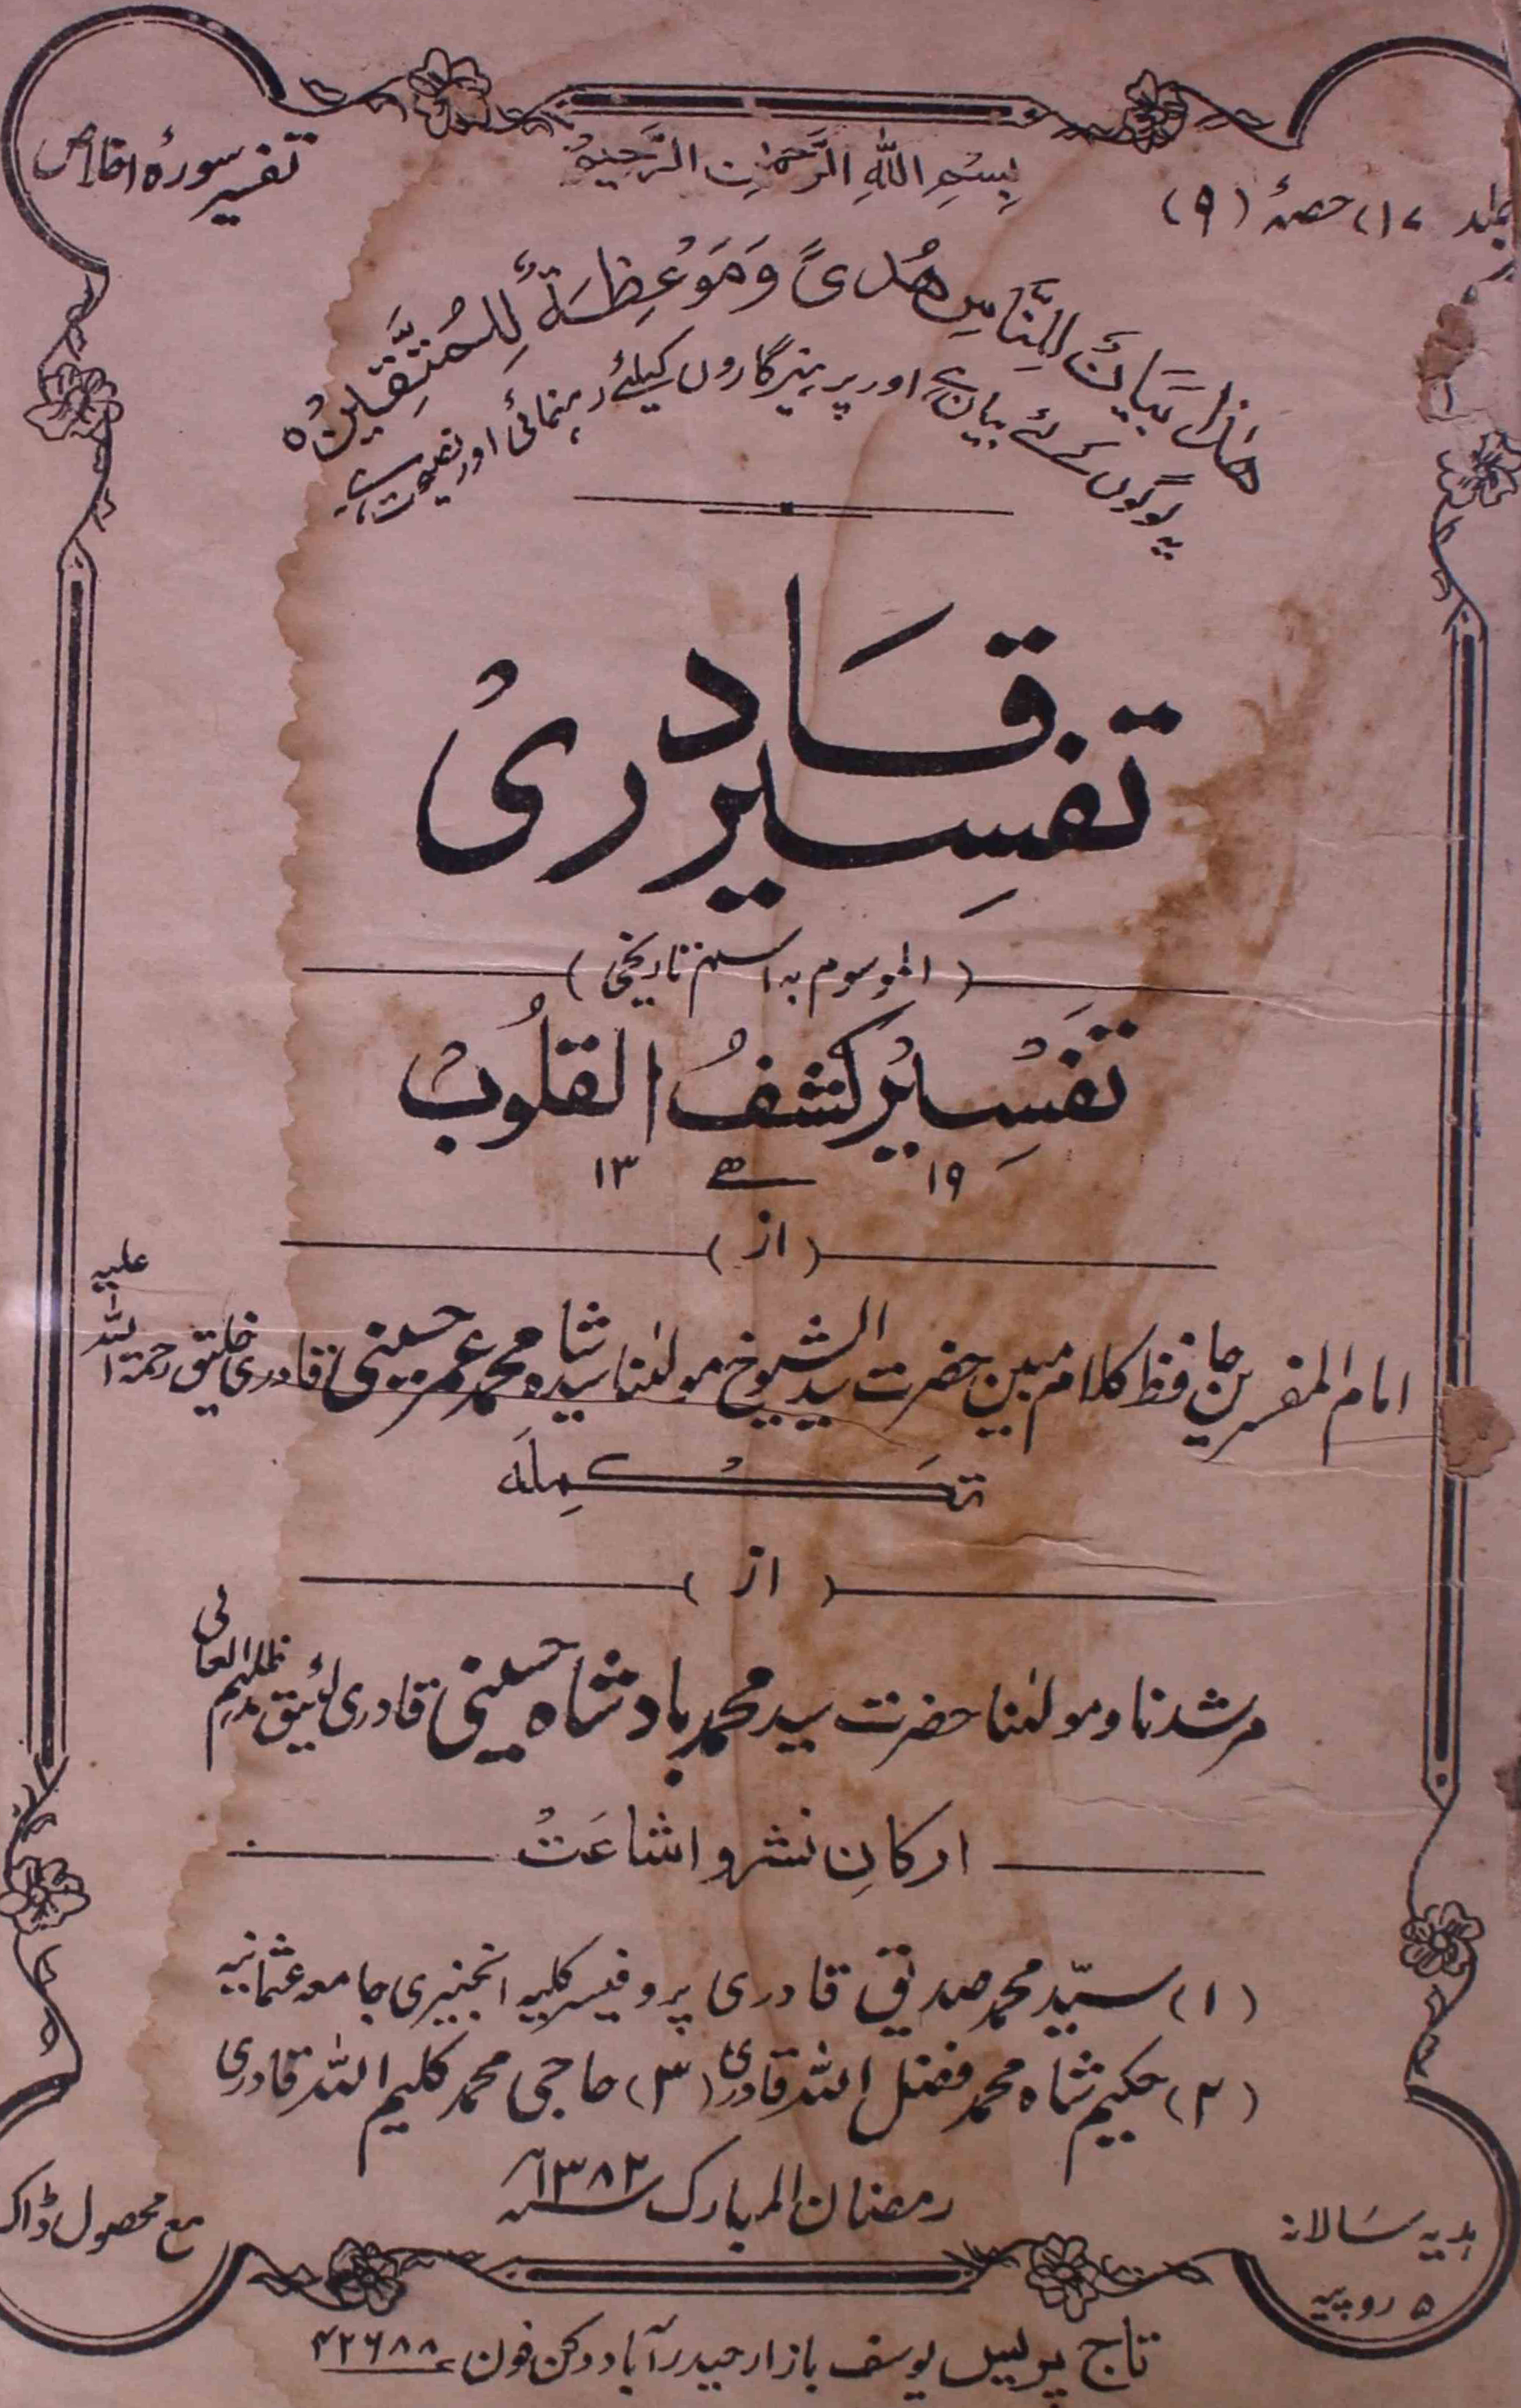 بِسْمِ اللّٰهِ الرَّحْمٰنِ الرَّحِيْمِ
جلد (۱۷) حصۂ (۹)
تفسیر سورۂ اخلاص
هٰذَا بَيَانٌ لِّلنَّاسِ وَهُدًى وَّمَوْعِظَةٌ لِّلْمُتَّقِيْنَ ہ
یہ لوگوں کے لئے بیان ہے اور پرہیزگاروں کیلئے رہنمائی اور نصیحت ہے
تفسیر قادری
(الموسوم بہ اسم تاریخی)
تفسیر کشف القلوب
۱۹ ھ ۱۳
(از)
امام المفسرین حافظ کلام مبین حضرت سید الشیوخ مولٰنا سید شاہ محمد عمر حسینی قادری خلیق رحمۃ اللہ علیہ
تکملہ
(از)
مرشدنا و مولٰنا حضرت سید محمد بادشاہ حسینی قادری لئیق مدظلہم العالی
ارکانِ نشر و اشاعت
(۱) سیّد محمد صدیق قادری پروفیسر کلیہ انجنیری جامعہ عثمانیہ
(۲) حکیم شاہ محمد فضل اللہ قادری (۳) حاجی محمد کلیم اللہ قادری
رمضان المبارک ۱۳۸۲ھ
ہدیہ سالانہ
۵ روپیہ
مع محصول ڈاک
تاج پریس یوسف بازار حیدرآباد دکن فون ۴۲۶۸۸